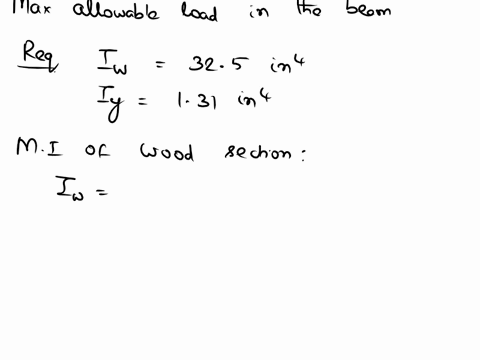 Max allowable load in the beam
Req I_w = 32.5 in⁴
I_y = 1.31 in⁴
M.I of wood section:
I_w =